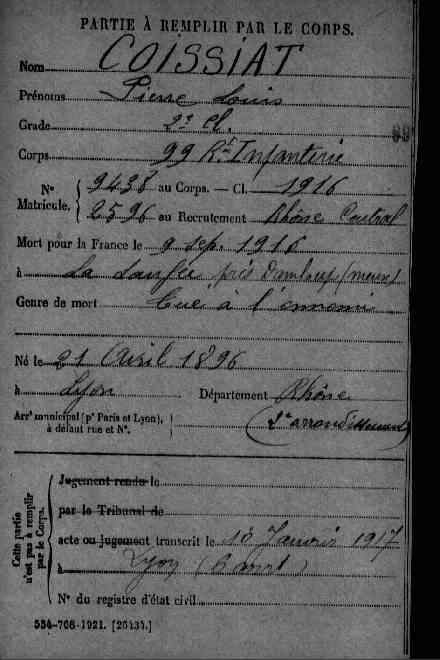 PARTIE À REMPLIR PAR LE CORPS.
Nom COISSIAT
Prénoms Pierre Louis
Grade 2e Cl.
Corps 99 Rt Infanterie
N° Matricule. 9438 au Corps. — Cl. 1916
2596 au Recrutement Rhône Central
Mort pour la France le 9 sep. 1916
à La Laufée, près Damloup (meuse)
Genre de mort Tué à l'ennemi
Né le 21 Avril 1896
à Lyon Département Rhône
Arrt municipal (pr Paris et Lyon), à défaut rue et N°. arrondissement
Cette partie n'est pas à remplir par le Corps.
Jugement rendu le
par le Tribunal de
acte ou jugement transcrit le 10 Janvier 1917
à Lyon (6
N° du registre d'état civil
534-708-1921. [26434.]